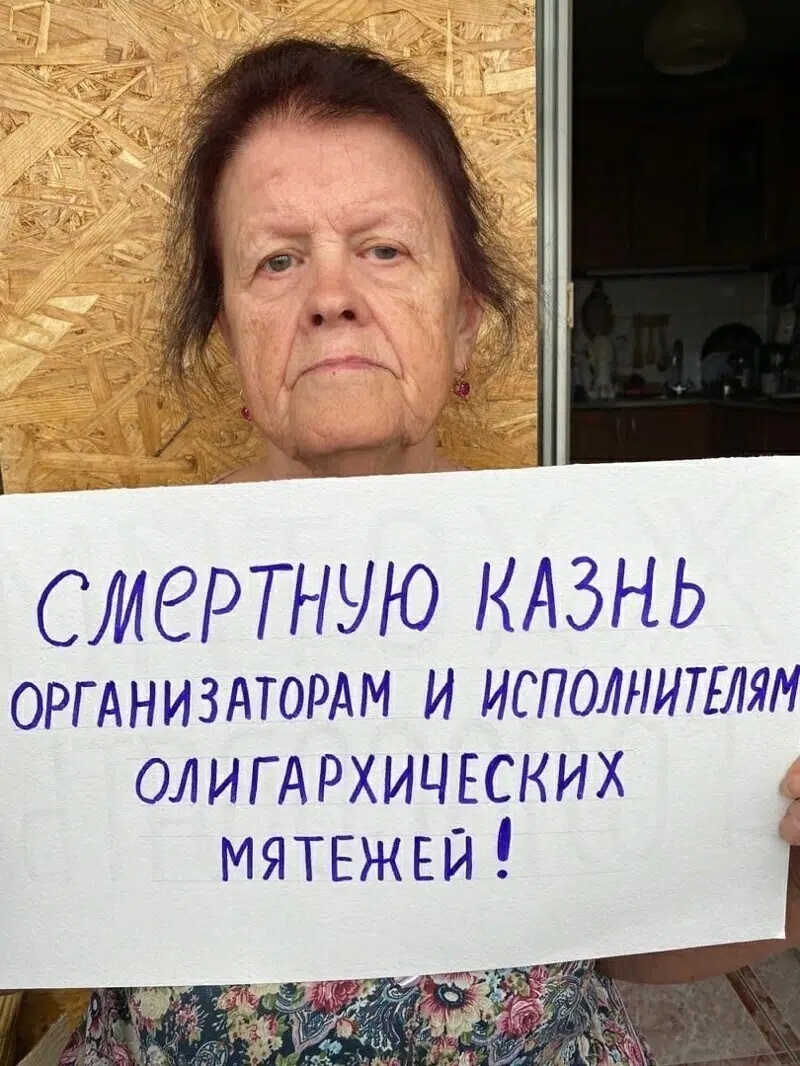 СМЕРТНУЮ КАЗНЬ
ОРГАНИЗАТОРАМ И ИСПОЛНИТЕЛЯМ
ОЛИГАРХИЧЕСКИХ
МЯТЕЖЕЙ!